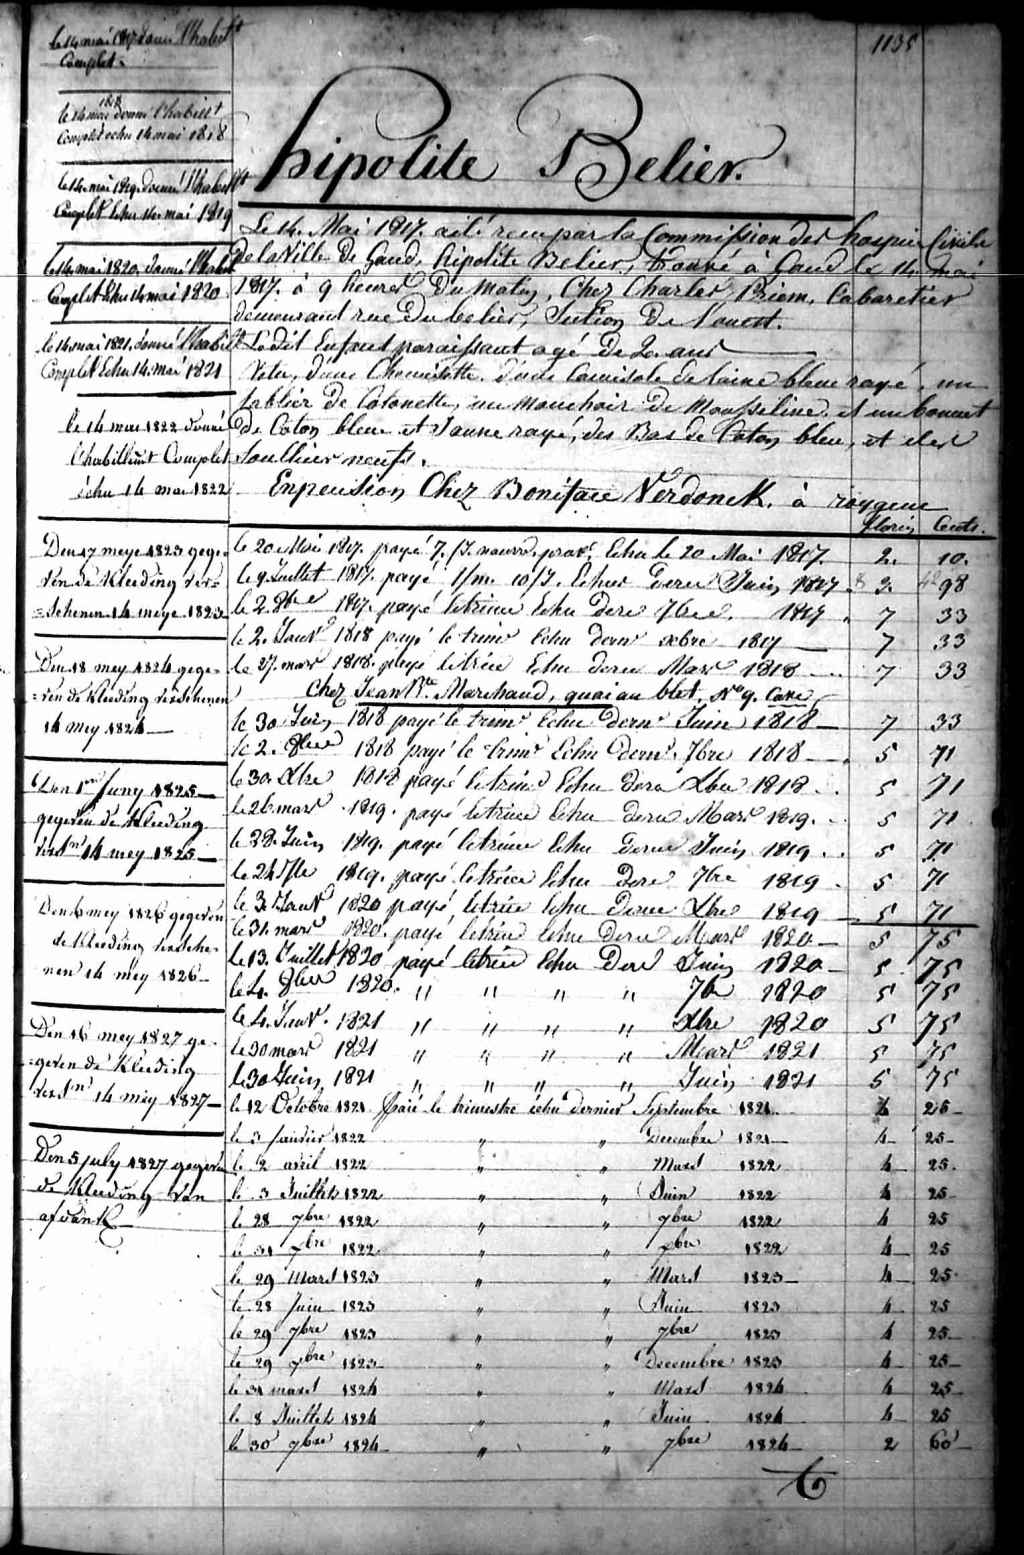 1135
le 14 mai 1817 donné l'habillt
Complet.
le 14 mai 1818 donné l'habillt
Complet échu 14 mai 1818
le 14 mai 1819 donné l'habillt
Complet Echu 14 mai 1819
le 14 mai 1820 donné l'habilt
Complet Echu 14 mai 1820
le 14 mai 1821 donné l'habillt
Complet Echu 14 mai 1821
le 14 mai 1822 donné
l'habillemt Complet
échu 14 mai 1822
Den 17 meye 1823 gege-
ven de Kleeding ver-
=schenen 14 meye 1823
Den 18 mey 1824 gege-
=ven de Kleeding verschenen
14 mey 1824
Den 1en Juny 1825
gegeven de Kleeding
versn 14 mey 1825
Den 6 mey 1826 gegeven
de Kleeding versche-
nen 14 mey 1826
Den 16 mey 1827 ge-
=geven de Kleeding
versn 14 mey 1827
Den 5 july 1827 gegeven
de Kleeding van
afdank
hipolite Belier.
Le 14. Mai 1817. a été reçu par la Commission des hospices Civils
de la Ville de Gand, hipolite Belier, trouvé à Gand le 14 mai
1817. à 9 heures Du Matin, Chez Charles Priem, Cabaretier
demeurant rue Du belier, Section De l'ouest.
Le dit Enfant paraissant agé de 2. ans
Vetu, d'une Chemisette, d'une Camisole de laine bleu rayé, un
tablier De Cotonette, un mouchoir de Mousseline, et un bonnet
de Coton bleu et Jaune rayé, des Bas de Coton bleu, et des
Soulliers neufs.
En pension Chez Boniface Verdonck, à
florins Cents.
le 20 Mai 1817. payé 7. échu le 20 Mai 1817. 2. 10.
le 9 Juillet 1817. payé Echu dern Juin 1817 98
le 2. 8bre 1817. payé le trime Echu dern 7bre 1817 7 33
le 2. Janvr 1818 payé le trimr Echu dernr xbre 1817 7 33
le 27. mars 1818. payé le trime Echu dern Mars 1818 7 33
Chez Jean Bte Marchand, quai au blet, No 9. Cave
le 30 Juin 1818 payé le trimr Echu dernr Juin 1818 7 33
le 2. 8bre 1818 payé le trimr Echu dernr 7bre 1818 5 71
le 30 Xbre 1818 payé le trime Echu dern Xbre 1818 5 71
le 26 mars 1819. payé le trime Echu dern Mars 1819. 5 71
le 28. Juin 1819. payé le trime Echu dern Juin 1819 5 71
le 24 7bre 1819. payé le trime Echu dern 7bre 1819 5 71
le 3 Janvr 1820 payé le trime Echu dern Xbre 1819 5 71
le 31 mars 1820. payé le trime Echu dern Mars 1820 5 75
le 13. Juillet 1820 payé le trime Echu dern Juin 1820 5 75
le 4. 8bre 1820. " " " " 7bre 1820 5 75
le 4. Janvr. 1821 " " " " Xbre 1820 5 75
le 30 mars 1821 " " " " Mars 1821 5 75
le 30 Juin 1821 " " " " Juin 1821 5 75
le 12 Octobre 1821 Paié le trimestre échu dernier Septembre 1821 4 25
le 3 janvier 1822 " " Decembre 1821 4 25
le 2 avril 1822 " " Mars 1822 4 25.
le 3 Juillet 1822 " " Juin 1822 4 25
le 28 7bre 1822 " " 7bre 1822 4 25
le 31 1822 " " 1822 4 25
le 29 Mars 1823 " " Mars 1823 4 25
le 28 Juin 1823 " " Juin 1823 4 25
le 29 7bre 1823 " " 7bre 1823 4 25
le 29 1823 " " Decembre 1823 4 25
le 31 mars 1824 " " Mars 1824 4 25
le 8 Juillet 1824 " " Juin 1824 4 25
le 30 7bre 1824 " " 7bre 1824 2 60